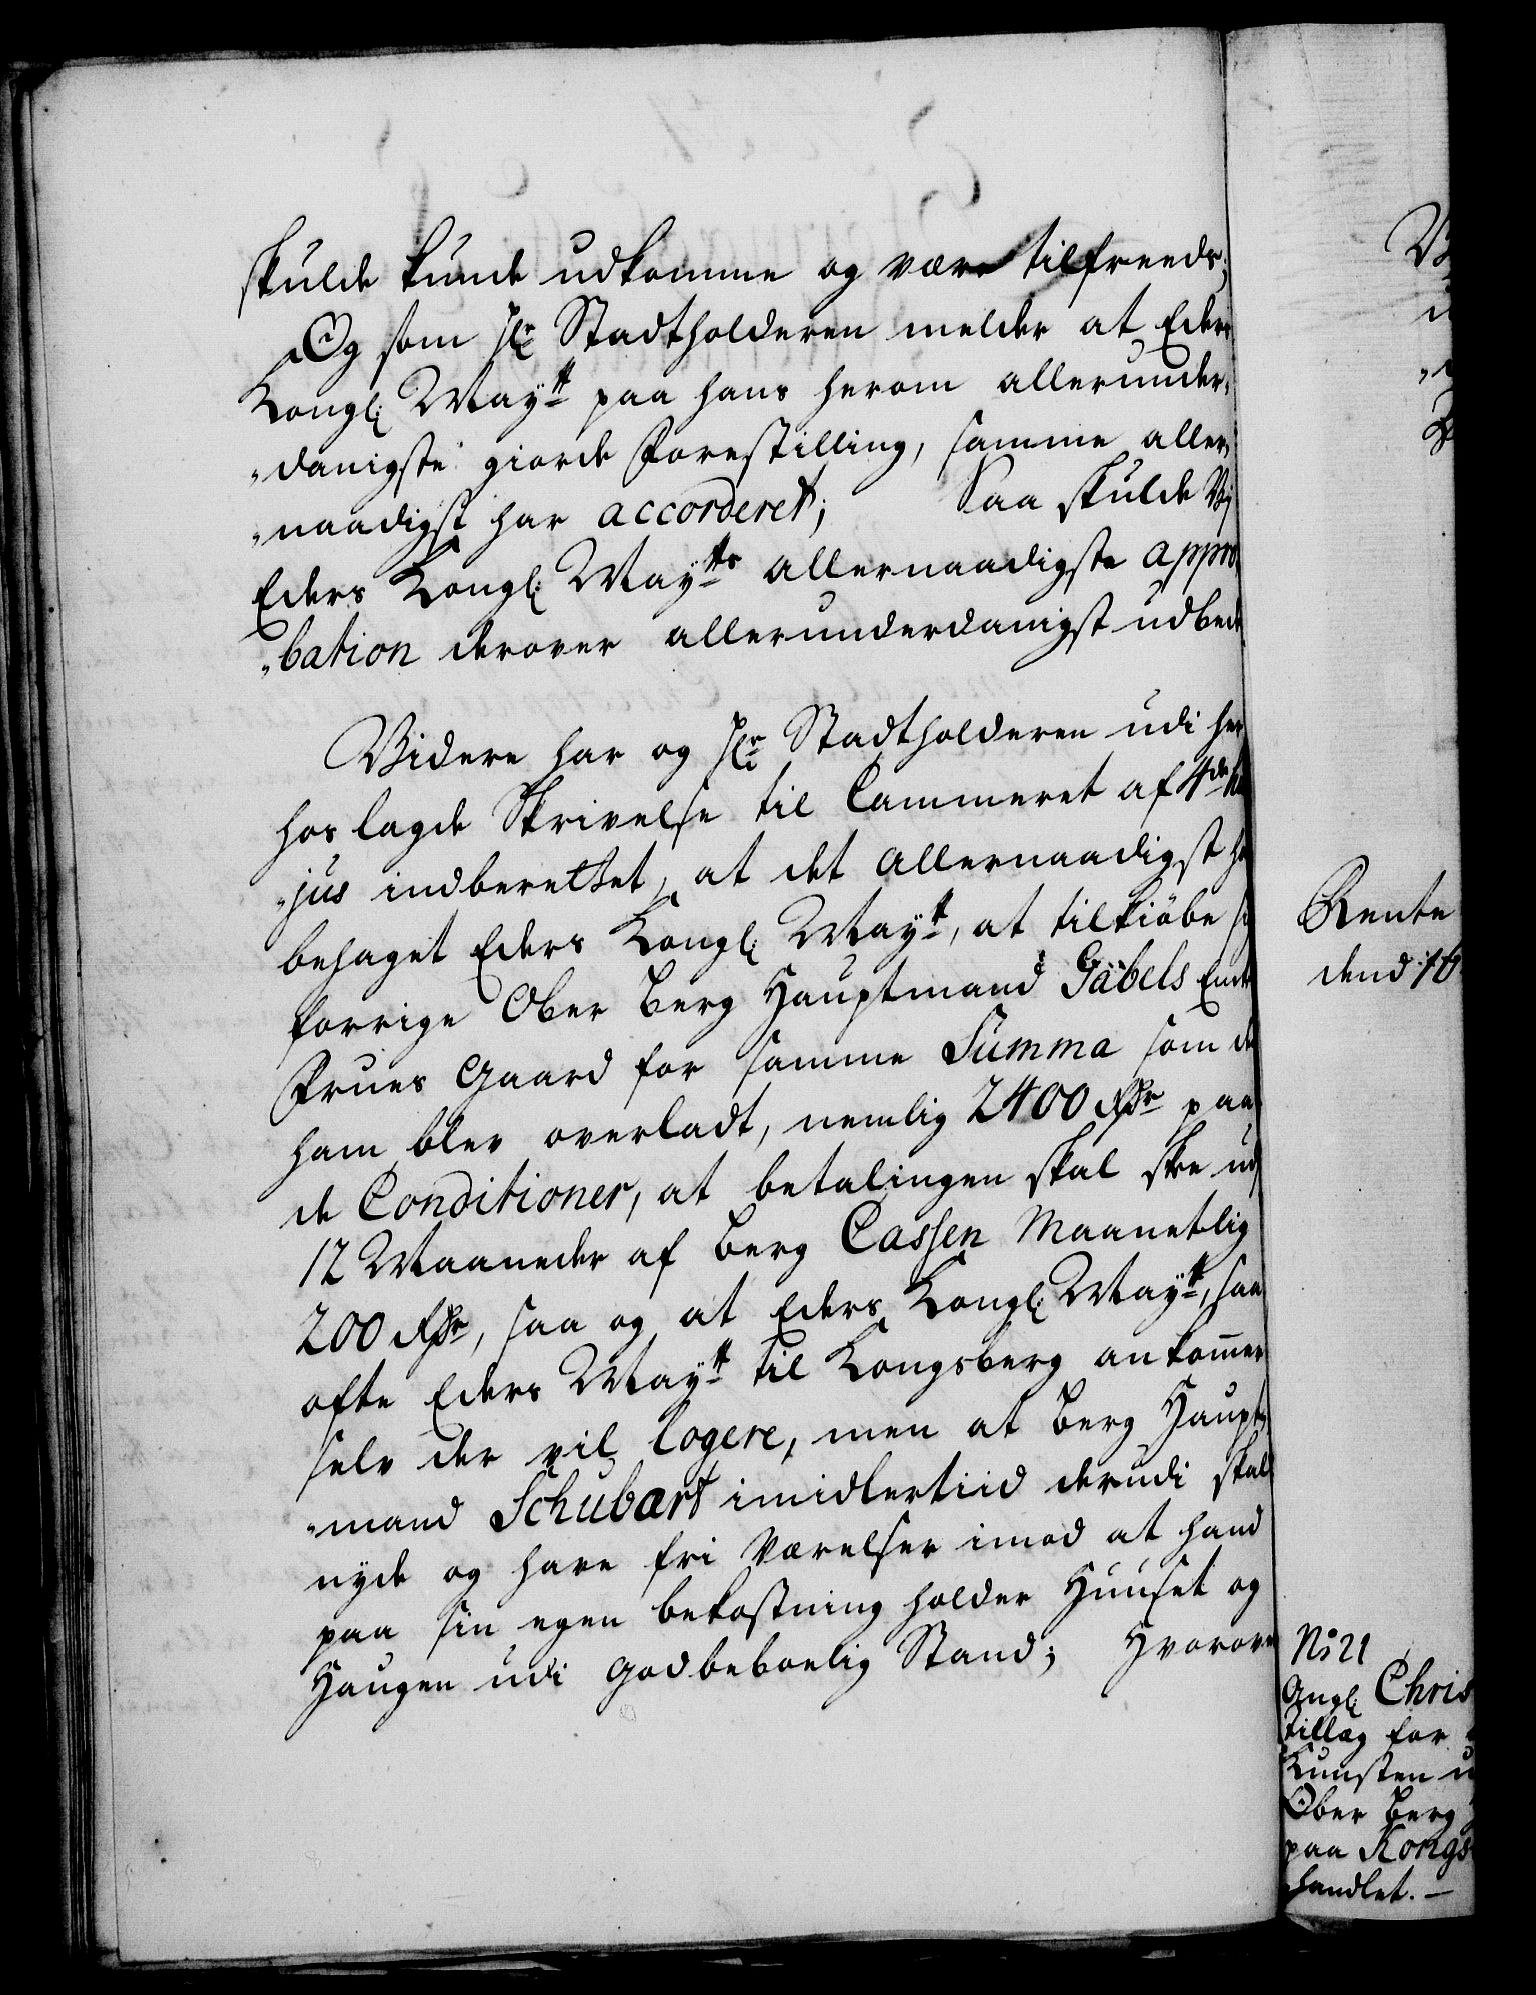 skulde kunde udkomme og være tilfreeds;
Og som Hr Stadtholderen melder at Eders
Kongl: Mayt paa hans herom allerunder„
„danigste giorde Forestilling, samme aller„
„naadigst har accorderet; Saa skulde Vj
Eders Kongl: Mayts allernaadigste appro„
„bation derover allerunderdanigst udbede
Videre har og Hr Stadtholderen udi her
hoslagde Skrivelse til Cammeret af 4de
„jus indberettet, at det allernaadigst ha
behaget Eders Kongl: Mayt, at tilkiøbe
forrige Ober Berg Hauptmand Gabels
Frues Gaard for samme Summa som de
ham blev overladt, nemlig 2400 Rdr paa
de Conditioner, at betalingen skal skee ud
12 Maaneder af Berg Cassen Maanetlig
200 Rdr, saa og at Eders Kongl: Mayt, saa
ofte Eders Mayt til Kongsberg ankommer
selv der vil logere, men at Berg Haupt„
„mand Schubart imidlertiid derudi skal
nyde og have fri Værelser imod at hand
paa sin egen bekostning holder Huuset og
Haugen udi godbeboelig Stand; Hvorove
Rente
dend 16
No 21
Angl: Chris
tillæg for
Kunsten u
Ober Berg
paa Kongs
handlet. –